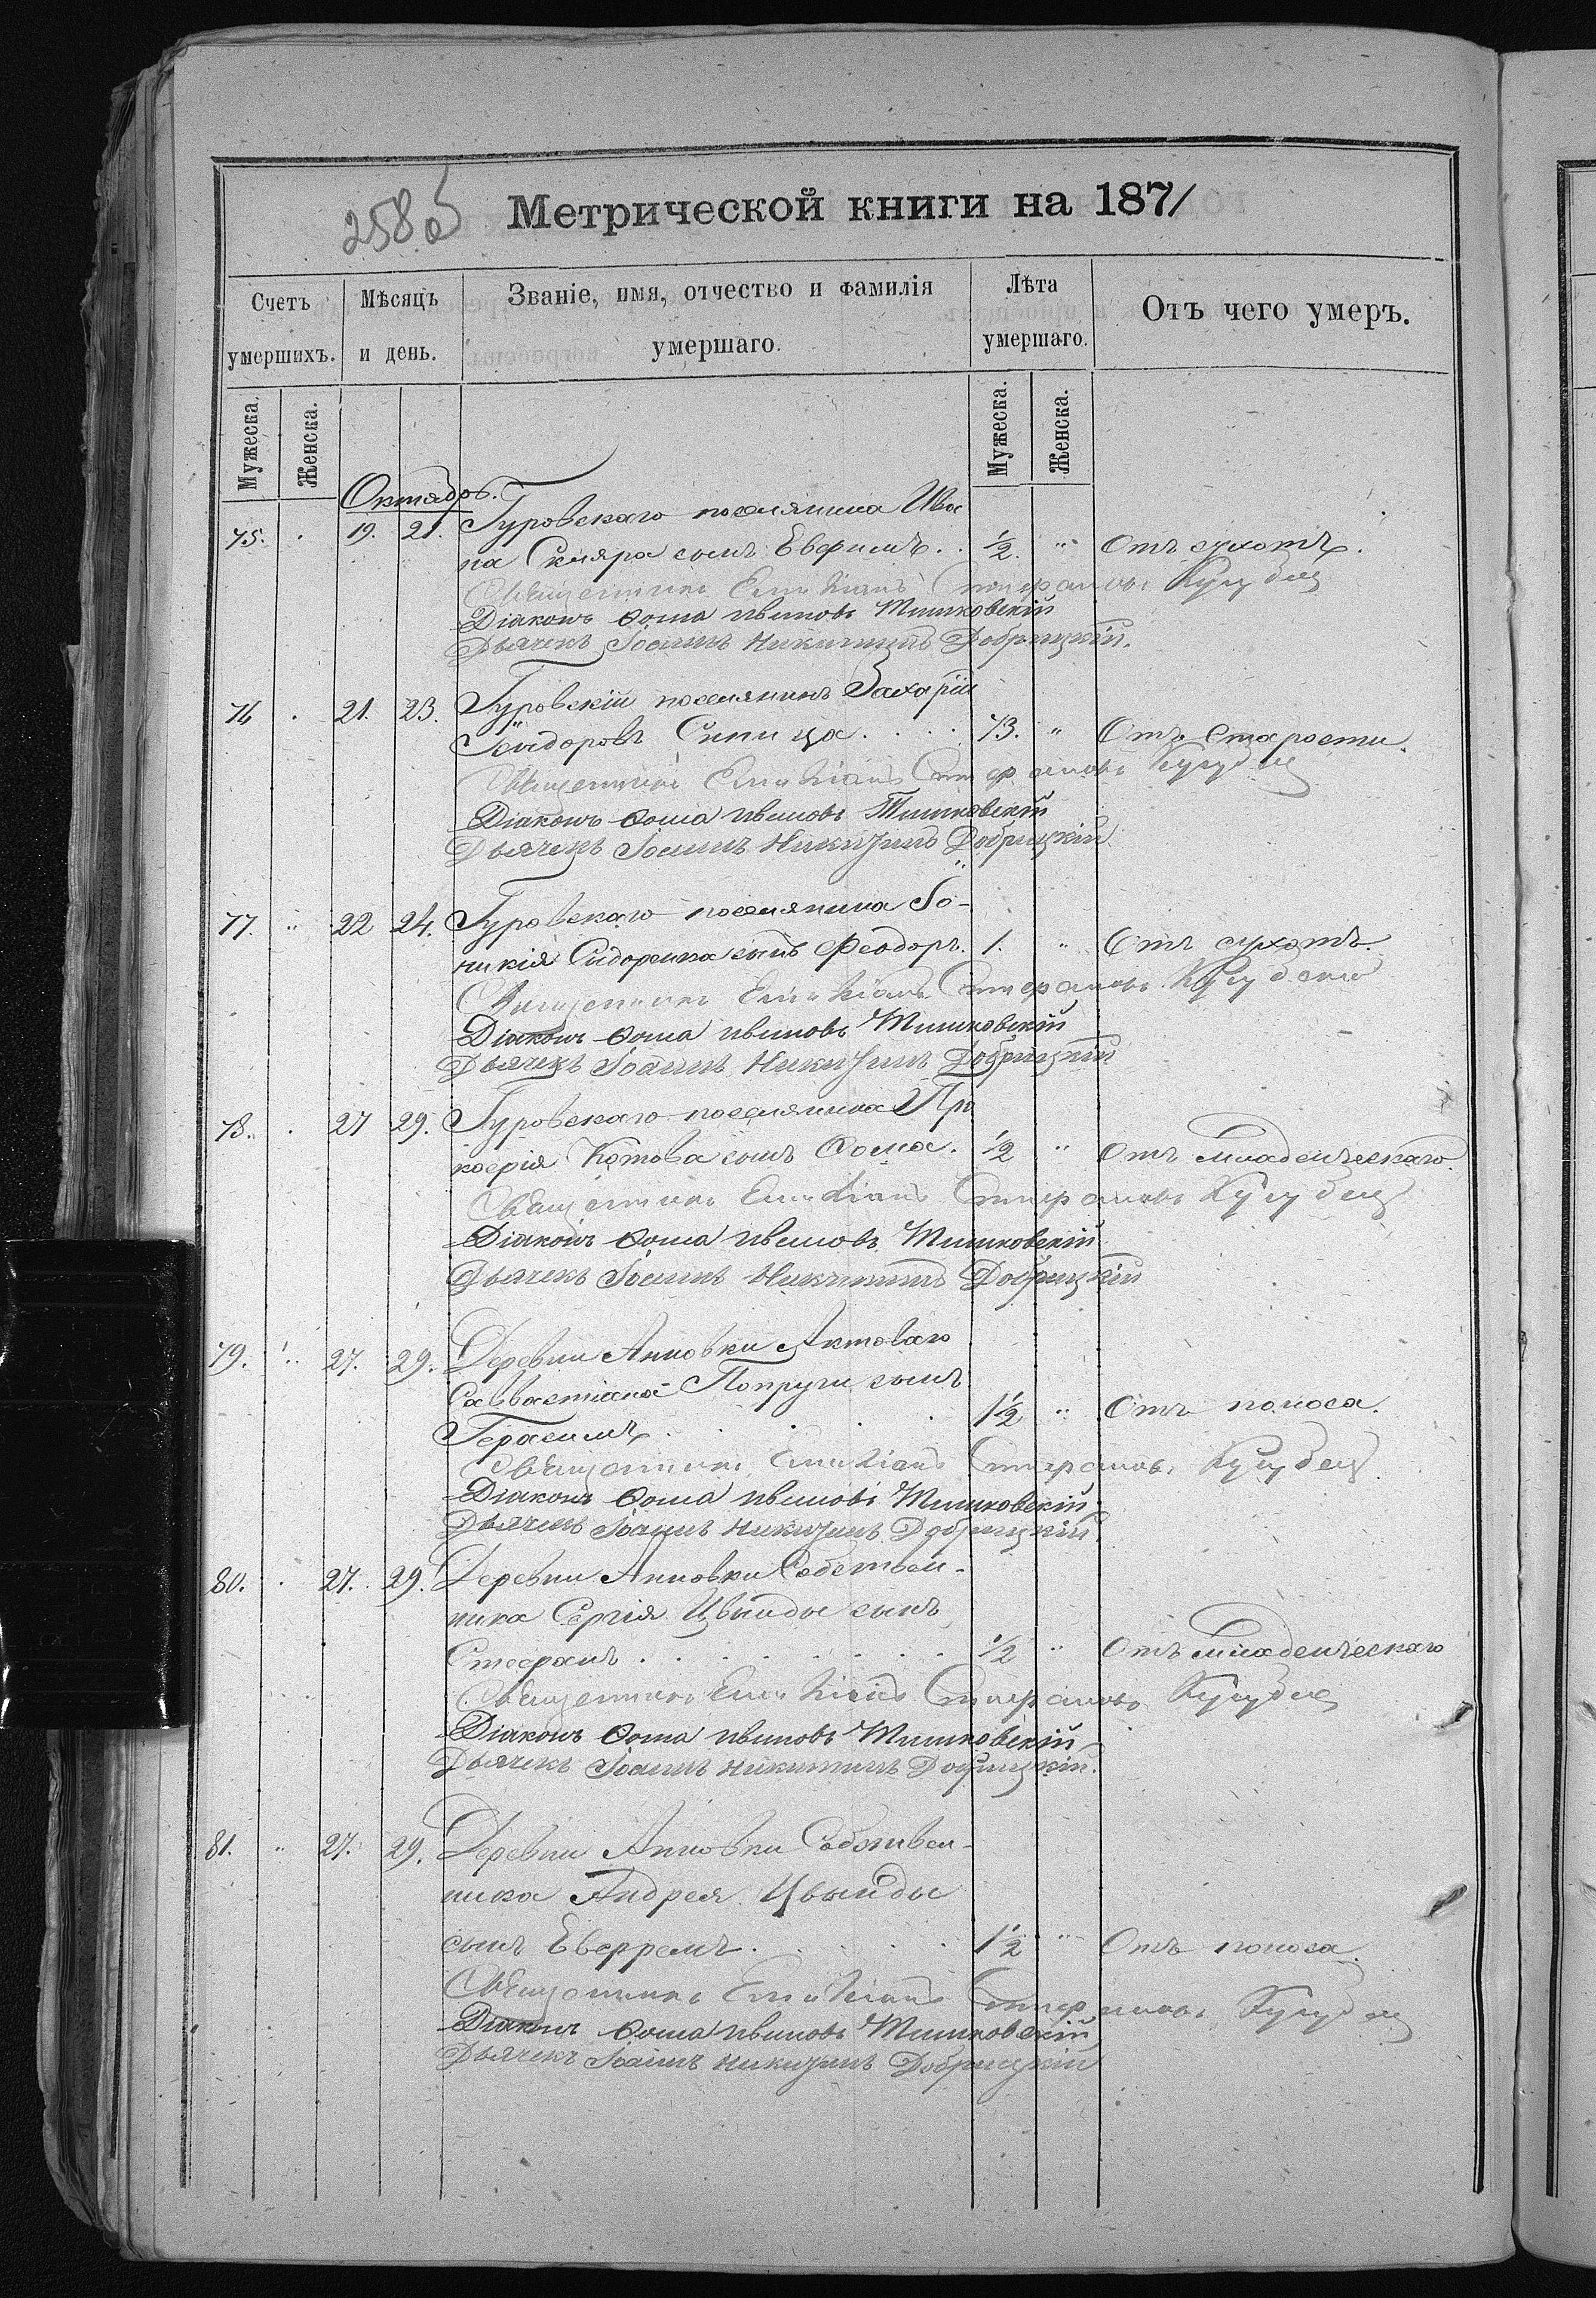 258об
Метрической книги на 1871
Счетъ умершихъ.
Мѣсяцъ и день.
Званіе, имя, отчество и фамилія умершаго.
Лѣта умершаго.
Отъ чего умеръ.
Мужеска.
Женска.
Мужеска.
Женска.
Октябрь.
75. 19. 21. Гуровскаго поселянина Ива
на Скляра сынъ Евфимъ. ½. " Отъ сухотъ.
Священникъ Емиліанъ Стефановъ
Діаконъ Ѳома Ивановъ Тишковскій
Дьячекъ Іоаннъ Никитинъ Добрицкій.
76 21. 23. Гуровскій поселянинъ Захарій
Исидоровъ Синица 73. " Отъ старости.
Священникъ Емиліанъ Стефановъ
Діаконъ Ѳома Ивановъ Тишковскій
Дьячекъ Іоаннъ Никитинъ Добрицкій
77. " 22 24. Гуровскаго поселянина Іо-
никія Сидоренка сынъ Феодоръ. 1. " Отъ сухотъ.
Священникъ Емиліанъ Стефановъ
Діаконъ Ѳома Ивановъ Тишковскій
Дьячекъ Іоаннъ Никитинъ Добрицкій
78. 27 29. Гуровскаго поселянина Про
кофія Котова сынъ Ѳома. ½ " Отъ младенческаго.
Священникъ Емиліанъ Стефановъ
Діаконъ Ѳома Ивановъ Тишковскій
Дьячекъ Іоаннъ Никитинъ Добрицкій
79. " 27. 29. Деревни Анновки Актоваго
Савастіана Попруги сынъ
Герасимъ 1½ " Отъ поноса.
Священникъ Емиліанъ Стефановъ
Діаконъ Ѳома Ивановъ Тишковскій
Дьячекъ Іоаннъ Никитинъ Добрицкій.
80. 27. 29. Деревни Анновки Собствен-
ника Сергія Цвынды сынъ
Стефанъ ½ " Отъ младенческаго
Священникъ Емиліанъ Стефановъ
Діаконъ Ѳома Ивановъ Тишковскій
Дьячекъ Іоаннъ Никитинъ Добрицкій.
81. " 27. 29. Деревни Анновки Собствен-
ника Андрея Цвынды
сынъ Евфремъ 1½ " Отъ поноса.
Священникъ Емиліанъ Стефановъ
Діаконъ Ѳома Ивановъ Тишковскій
Дьячекъ Іоаннъ Никитинъ Добрицкій